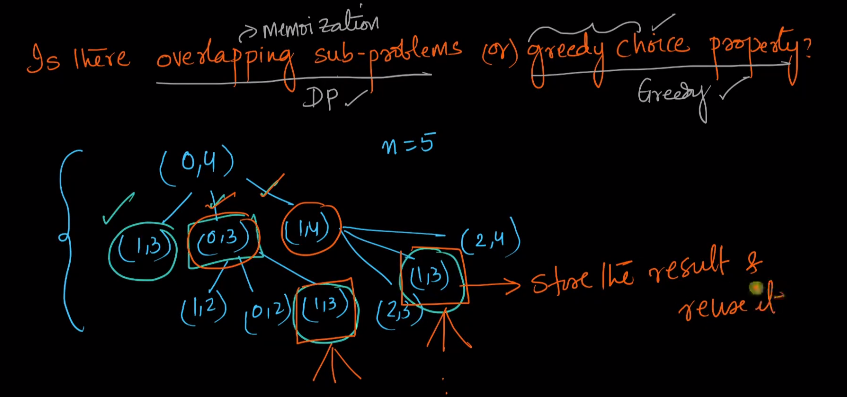 Memoization
Is there overlapping sub-problems (or) greedy choice property?
DP
Greedy
n=5
(0,4)
(1,3) (0,3) (1,4)
(2,4)
(1,3)
(1,2) (0,2) (1,3) (2,3)
Store the result &
reuse it